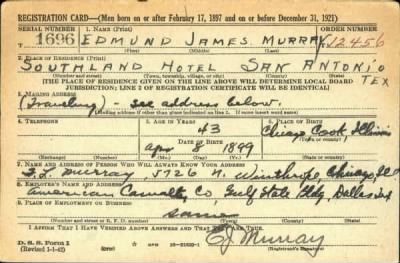 REGISTRATION CARD—(Men born on or after February 17, 1897 and on or before December 31, 1921)
SERIAL NUMBER 1. NAME (Print) ORDER NUMBER
1696 EDMUND JAMES MURRAY 12456
(First) (Middle) (Last)
2. PLACE OF RESIDENCE (Print)
SOUTHLAND HOTEL SAN ANTONIO TEX
(Number and street) (Town, township, village, or city) (County) (State)
[THE PLACE OF RESIDENCE GIVEN ON THE LINE ABOVE WILL DETERMINE LOCAL BOARD
JURISDICTION; LINE 2 OF REGISTRATION CERTIFICATE WILL BE IDENTICAL]
3. MAILING ADDRESS
(Traveling) — see address below.
[Mailing address if other than place indicated on line 2. If same insert word same]
4. TELEPHONE 5. AGE IN YEARS 6. PLACE OF BIRTH
43 Chicago Cook, Illinois
DATE OF BIRTH (Town or county)
Apr 8 1899
(Exchange) (Number) (Mo.) (Day) (Yr.) (State or country)
7. NAME AND ADDRESS OF PERSON WHO WILL ALWAYS KNOW YOUR ADDRESS
Murray, 5726 N. Winthrop, Chicago, Ill
8. EMPLOYER'S NAME AND ADDRESS
American Casualty Co, Gulf State Bldg, Dallas Tex
9. PLACE OF EMPLOYMENT OR BUSINESS
same
(Number and street or R. F. D. number) (Town) (County) (State)
I AFFIRM THAT I HAVE VERIFIED ABOVE ANSWERS AND THAT THEY ARE TRUE.
D. S. S. Form 1
(Revised 1-1-42) (over) 16-21630-1 EJ Murray
(Registrant's signature)